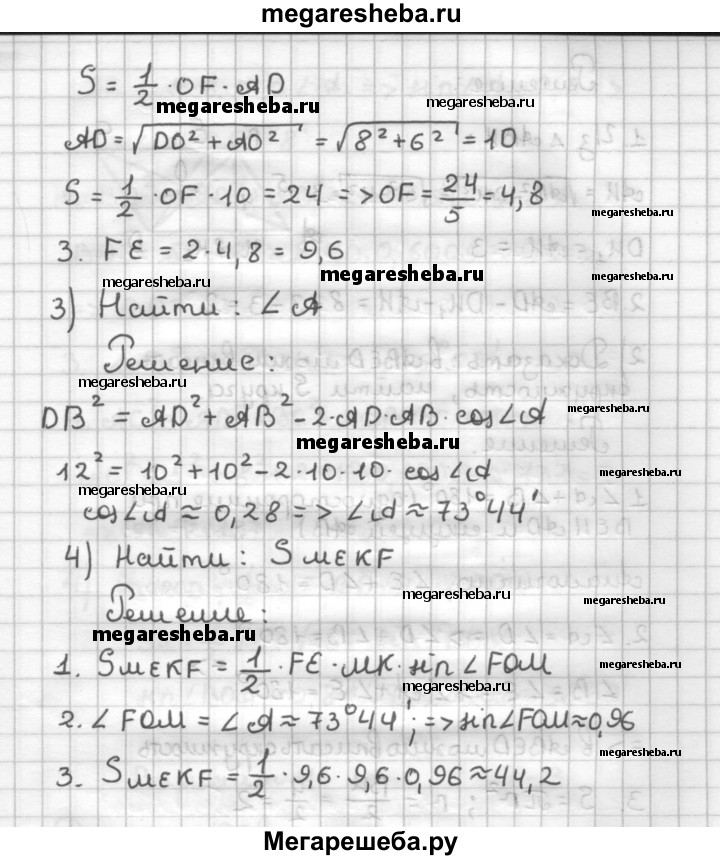 megaresheba.ru
S = 1/2 · OF · AD
megaresheba.ru megaresheba.ru
AD = √DO² + AO² = √8² + 6² = 10
S = 1/2 · OF · 10 = 24 => OF = 24/5 = 4,8
megaresheba.ru
3. FE = 2 · 4,8 = 9,6
megaresheba.ru megaresheba.ru megaresheba.ru
3) Найти: ∠A
Решение:
megaresheba.ru
DB² = AD² + AB² - 2·AD·AB·cos∠A
megaresheba.ru
megaresheba.ru
12² = 10² + 10² - 2·10·10·cos∠A
megaresheba.ru
megaresheba.ru
cos∠A ≈ 0,28 => ∠A ≈ 73°44'
4) Найти: SMEKF
Решение:
megaresheba.ru
megaresheba.ru
megaresheba.ru
1. SMEKF = 1/2 · FE · MK · sin∠FOM
megaresheba.ru
megaresheba.ru
2. ∠FOM = ∠A ≈ 73°44'; => sin∠FOM ≈ 0,96
megaresheba.ru
3. SMEKF = 1/2 · 9,6 · 9,6 · 0,96 ≈ 44,2
Мегарешеба.ру